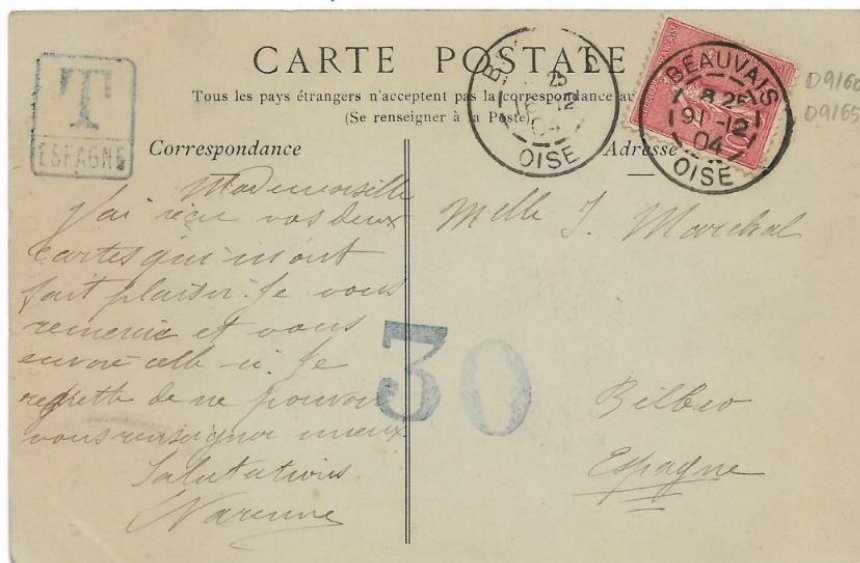 CARTE POSTALE
Tous les pays étrangers n'acceptent pas la correspondance au
(Se renseigner à la Poste)
T
ESPAGNE
BEAUVAIS
8 25
9 -12
04
OISE
B
04
OISE
D9/60
D9/65
Correspondance
Mademoiselle
J'ai reçu vos deux
cartes qui m'ont
fait plaisir. Je vous
remercie et vous
envoie celle-ci. Je
regrette de ne pouvoir
vous renseigner mieux.
Salutations
Varenne
30
Adresse
Melle J. Marechal
Bilbao
Espagne